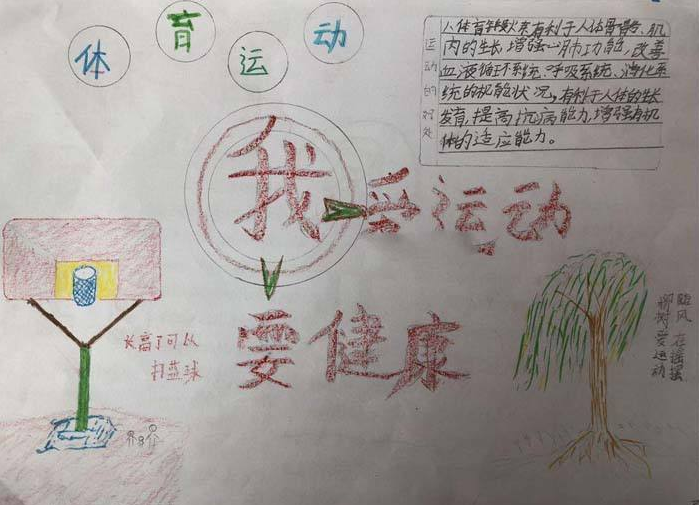 体育运动
运动的好处
1、体育锻炼有利于人体骨骼、肌
内的生长,增强心肺功能,改善
血液循环系统、呼吸系统、消化系
统的机能状况,有利于人体的生长
发育,提高抗病能力,增强有机
体的适应能力。
我
要运动
要健康
长高了可以
打蓝球
随风在摇摆
柳树爱运动